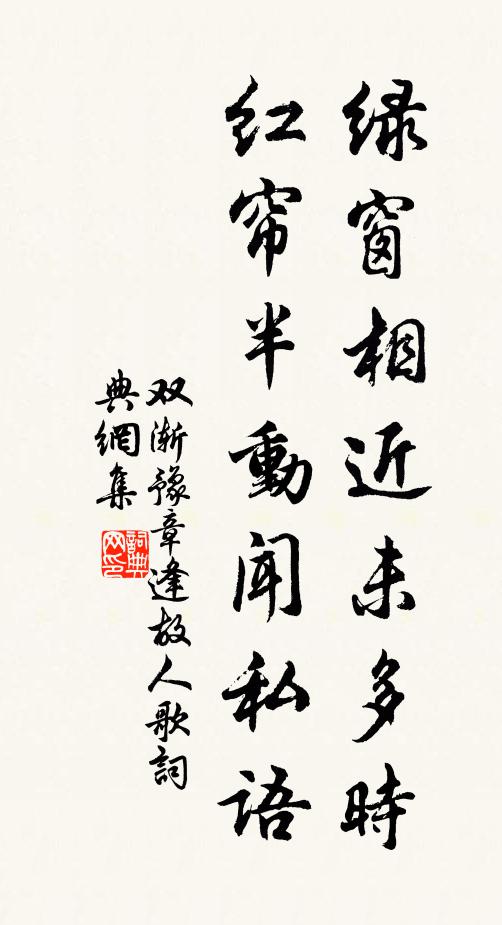 绿窗相近未多時
红帘半動闻私语
双渐豫章逢故人歌詞
典網集
詞典
网印